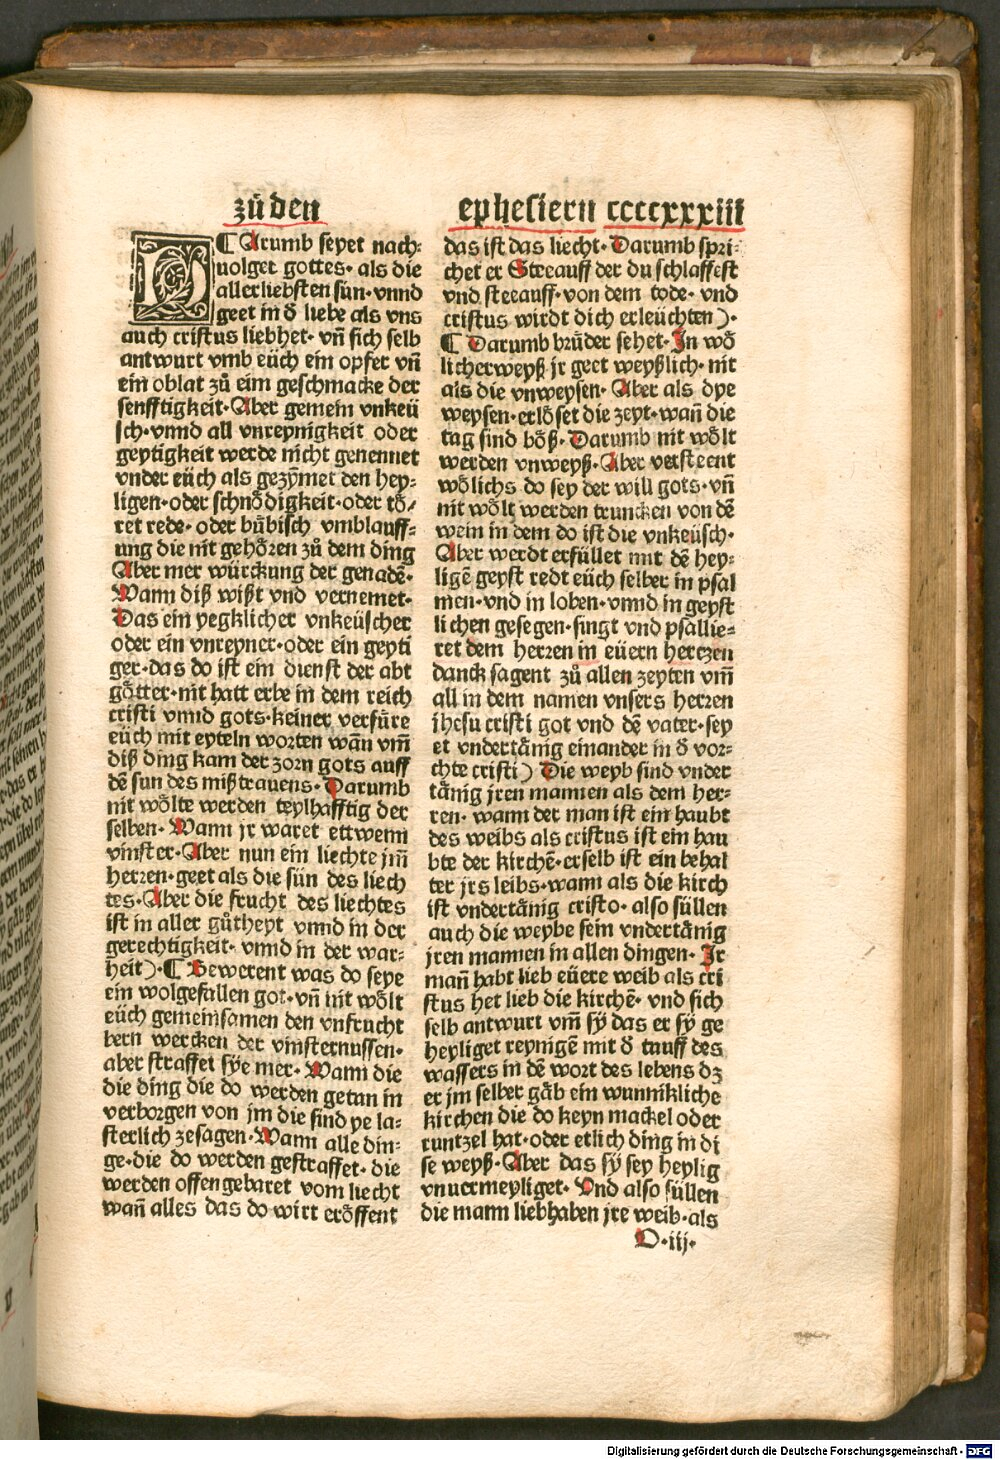 zů den
ephesiern ccccxxxiii
D¶Arumb seyet nach⸗
uolger gottes· als die
allerliebsten sün· vnnd
geet in ð liebe als vns
auch cristus liebhet· vñ sich selb
antwurt vmb eüch ein opfer vñ
ein oblat zů eim geschmacke der
senfftigkeit· Aber gemein vnkeü
sch· vnnd all vnreynigkeit oder
geytigkeit werde nicht genennet
vnder eüch als gezymet den hey⸗
ligen· oder schnödigkeit· oder tö/
ret rede· oder bübisch vmblauff⸗
ung die nit gehören zů dem ding
Aber mer würckung der genadē·
Wann diß wißt vnd vernemet·
Das ein yegklicher vnkeüscher
oder ein vnreyner· oder ein geyti
ger· das do ist ein dienst der abt
götter· nit hatt erbe in dem reich
cristi vnnd gots· keiner verfüre
eüch mit eyteln worten wān vm̄
diß ding kam der zorn gots auff
dē sun des mißtrauens· Darumb
nit wölte werden teylhafftig der
selben· Wann jr waret ettwenn
vinster· Aber nun ein liechte jm̄
herren· geet als die sün des liech
tes· Aber die frucht des liechtes
ist in aller gůtheyt vnnd in der
gerechtigkeit· vnnd in der war⸗
heit)· ¶ Bewerent was do seye
ein wolgefallen got· vñ nit wölt
eüch gemeinsamen den vnfrucht
bern wercken der vinsternussen·
aber straffet sÿe mer· Wann die
die ding die do werden getan in
verborgen von jm die sind ye la⸗
sterlich zesagen· Wann alle din⸗
ge· die do werden gestraffet· die
werden offengebaret vom liecht
wañ alles das do wirt eröffent
das ist das liecht· Darumb spri⸗
chet er Steeauff der du schlaffest
vnd steeauff· von dem tode· vnd
cristus wirdt dich erleüchten)·
¶ Darumb brüder sehet· In wö
licherweyß jr geet weyßlich· nit
als die vnweysen· Aber als dye
weysen· erlöset die zeyt· wañ die
tag sind böß· Darumb nit wölt
werden vnweyß· Aber versteent
wölichs do sey der will gots· vñ
nit wölt werden truncken von dē
wein in dem do ist die vnkeüsch·
Aber werdt erfüllet mit dē hey⸗
ligē geyst redt eüch selber in psal
men· vnd in loben· vnnd in geyst
lichen gesegen· singt vnd psallie⸗
ret dem herren in eüern hertzen
danck sagent zů allen zeyten vm̄
all in dem namen vnsers herren
jhesu cristi got vnd dē vater· sey
et vndertänig einander in ð vor⸗
chte cristi) Die weyb sind vnder
tänig jren mannen als dem her⸗
ren· wann der man ist ein haubt
des weibs als cristus ist ein hau
bte der kirchē· erselb ist ein behal
ter jrs leibs· wann als die kirch
ist vndertänig cristo· also süllen
auch die weybe sein vndertänig
jren mannen in allen dingen· Ir
mañ habt lieb eüere weib als cri
stus het lieb die kirchē· vnd sich
selb antwurt vm̄ sÿ das er sÿ ge
heyliget reynigē mit ð tauff des
wassers in dē wort des lebens dz
er jm selber gäb ein wunnikliche
kirchen die do keyn mackel oder
runtzel hat· oder etlich ding in di
se weyß· Aber das sÿ sey heylig
vnuermeyliget· Vnd also süllen
die mann liebhaben jre weib· als
D·iij·
Digitalisierung gefördert durch die Deutsche Forschungsgemeinschaft - DFG